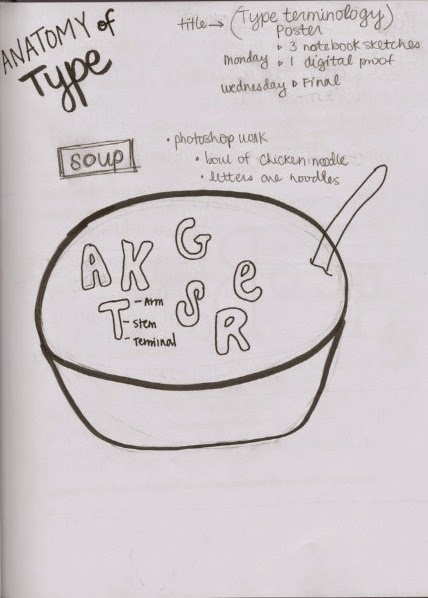 ANATOMY of
Type
title → (Type terminology)
Poster
▹ 3 notebook sketches
monday ▹ 1 digital proof
wednesday ▹ Final
TITLE
soup
• photoshop work
• bowl of chicken noodle
• letters are noodles
G
A K
e
S
T
R
- Arm
- Stem
- Terminal